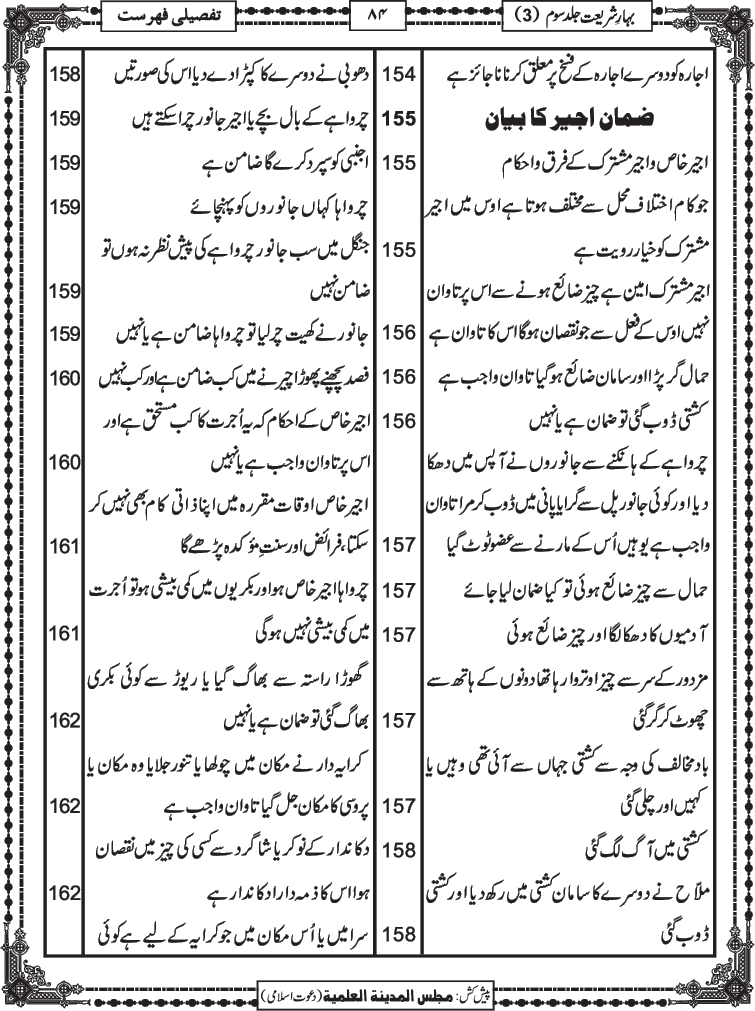 بہارِ شریعت جلد سوم (3)
۸۴
تفصیلی فہرست
اجارہ کو دوسرے اجارہ کے فسخ پر معلق کرنا ناجائز ہے 154
ضمان اجیر کا بیان 155
اجیر خاص و اجیر مشترک کے فرق و احکام 155
جو کام اختلاف محل سے مختلف ہوتا ہے اوس میں اجیر
مشترک کو خیار رویت ہے 155
اجیر مشترک امین ہے چیز ضائع ہونے سے اس پر تاوان
نہیں اوس کے فعل سے جو نقصان ہوگا اس کا تاوان ہے 156
حمال گر پڑا اور سامان ضائع ہوگیا تاوان واجب ہے 156
کشتی ڈوب گئی تو ضمان ہے یا نہیں 156
چرواہے کے ہانکنے سے جانوروں نے آپس میں دھکا
دیا اور کوئی جانور پل سے گرا یا پانی میں ڈوب کر مرا تاوان
واجب ہے یوہیں اُس کے مارنے سے عضو ٹوٹ گیا 157
حمال سے چیز ضائع ہوئی تو کیا ضمان لیا جائے 157
آدمیوں کا دھکا لگا اور چیز ضائع ہوئی 157
مزدور کے سر سے چیز اوتروا رہا تھا دونوں کے ہاتھ سے
چھوٹ کر گر گئی 157
باد مخالف کی وجہ سے کشتی جہاں سے آئی تھی وہیں یا
کہیں اور چلی گئی 157
کشتی میں آگ لگ گئی 158
ملاّح نے دوسرے کا سامان کشتی میں رکھ دیا اور کشتی
ڈوب گئی 158
دھوبی نے دوسرے کا کپڑا دے دیا اس کی صورتیں 158
چرواہے کے بال بچے یا اجیر جانور چرا سکتے ہیں 159
اجنبی کو سپرد کرے گا ضامن ہے 159
چرواہا کہاں جانوروں کو پہنچائے 159
جنگل میں سب جانور چرواہے کی پیش نظر نہ ہوں تو
ضامن نہیں 159
جانور نے کھیت چر لیا تو چرواہا ضامن ہے یا نہیں 159
فصد پچھنے پھوڑا چیرنے میں کب ضامن ہے اور کب نہیں 160
اجیر خاص کے احکام کہ یہ اُجرت کا کب مستحق ہے اور
اس پر تاوان واجب ہے یا نہیں 160
اجیر خاص اوقات مقررہ میں اپنا ذاتی کام بھی نہیں کر
سکتا، فرائض اور سنتِ مؤکدہ پڑھے گا 161
چرواہا اجیر خاص ہو اور بکریوں میں کمی بیشی ہو تو اُجرت
میں کمی بیشی نہیں ہوگی 161
گھوڑا راستہ سے بھاگ گیا یا ریوڑ سے کوئی بکری
بھاگ گئی تو ضمان ہے یا نہیں 162
کرایہ دار نے مکان میں چولھا یا تنور جلایا وہ مکان یا
پروسی کا مکان جل گیا تاوان واجب ہے 162
دکاندار کے نوکر یا شاگرد سے کسی کی چیز میں نقصان
ہوا اس کا ذمہ دار ادکاندار ہے 162
سرا میں یا اُس مکان میں جو کرایہ کے لیے ہے کوئی
پیش کش: مجلس المدينة العلمية (دعوت اسلامی)